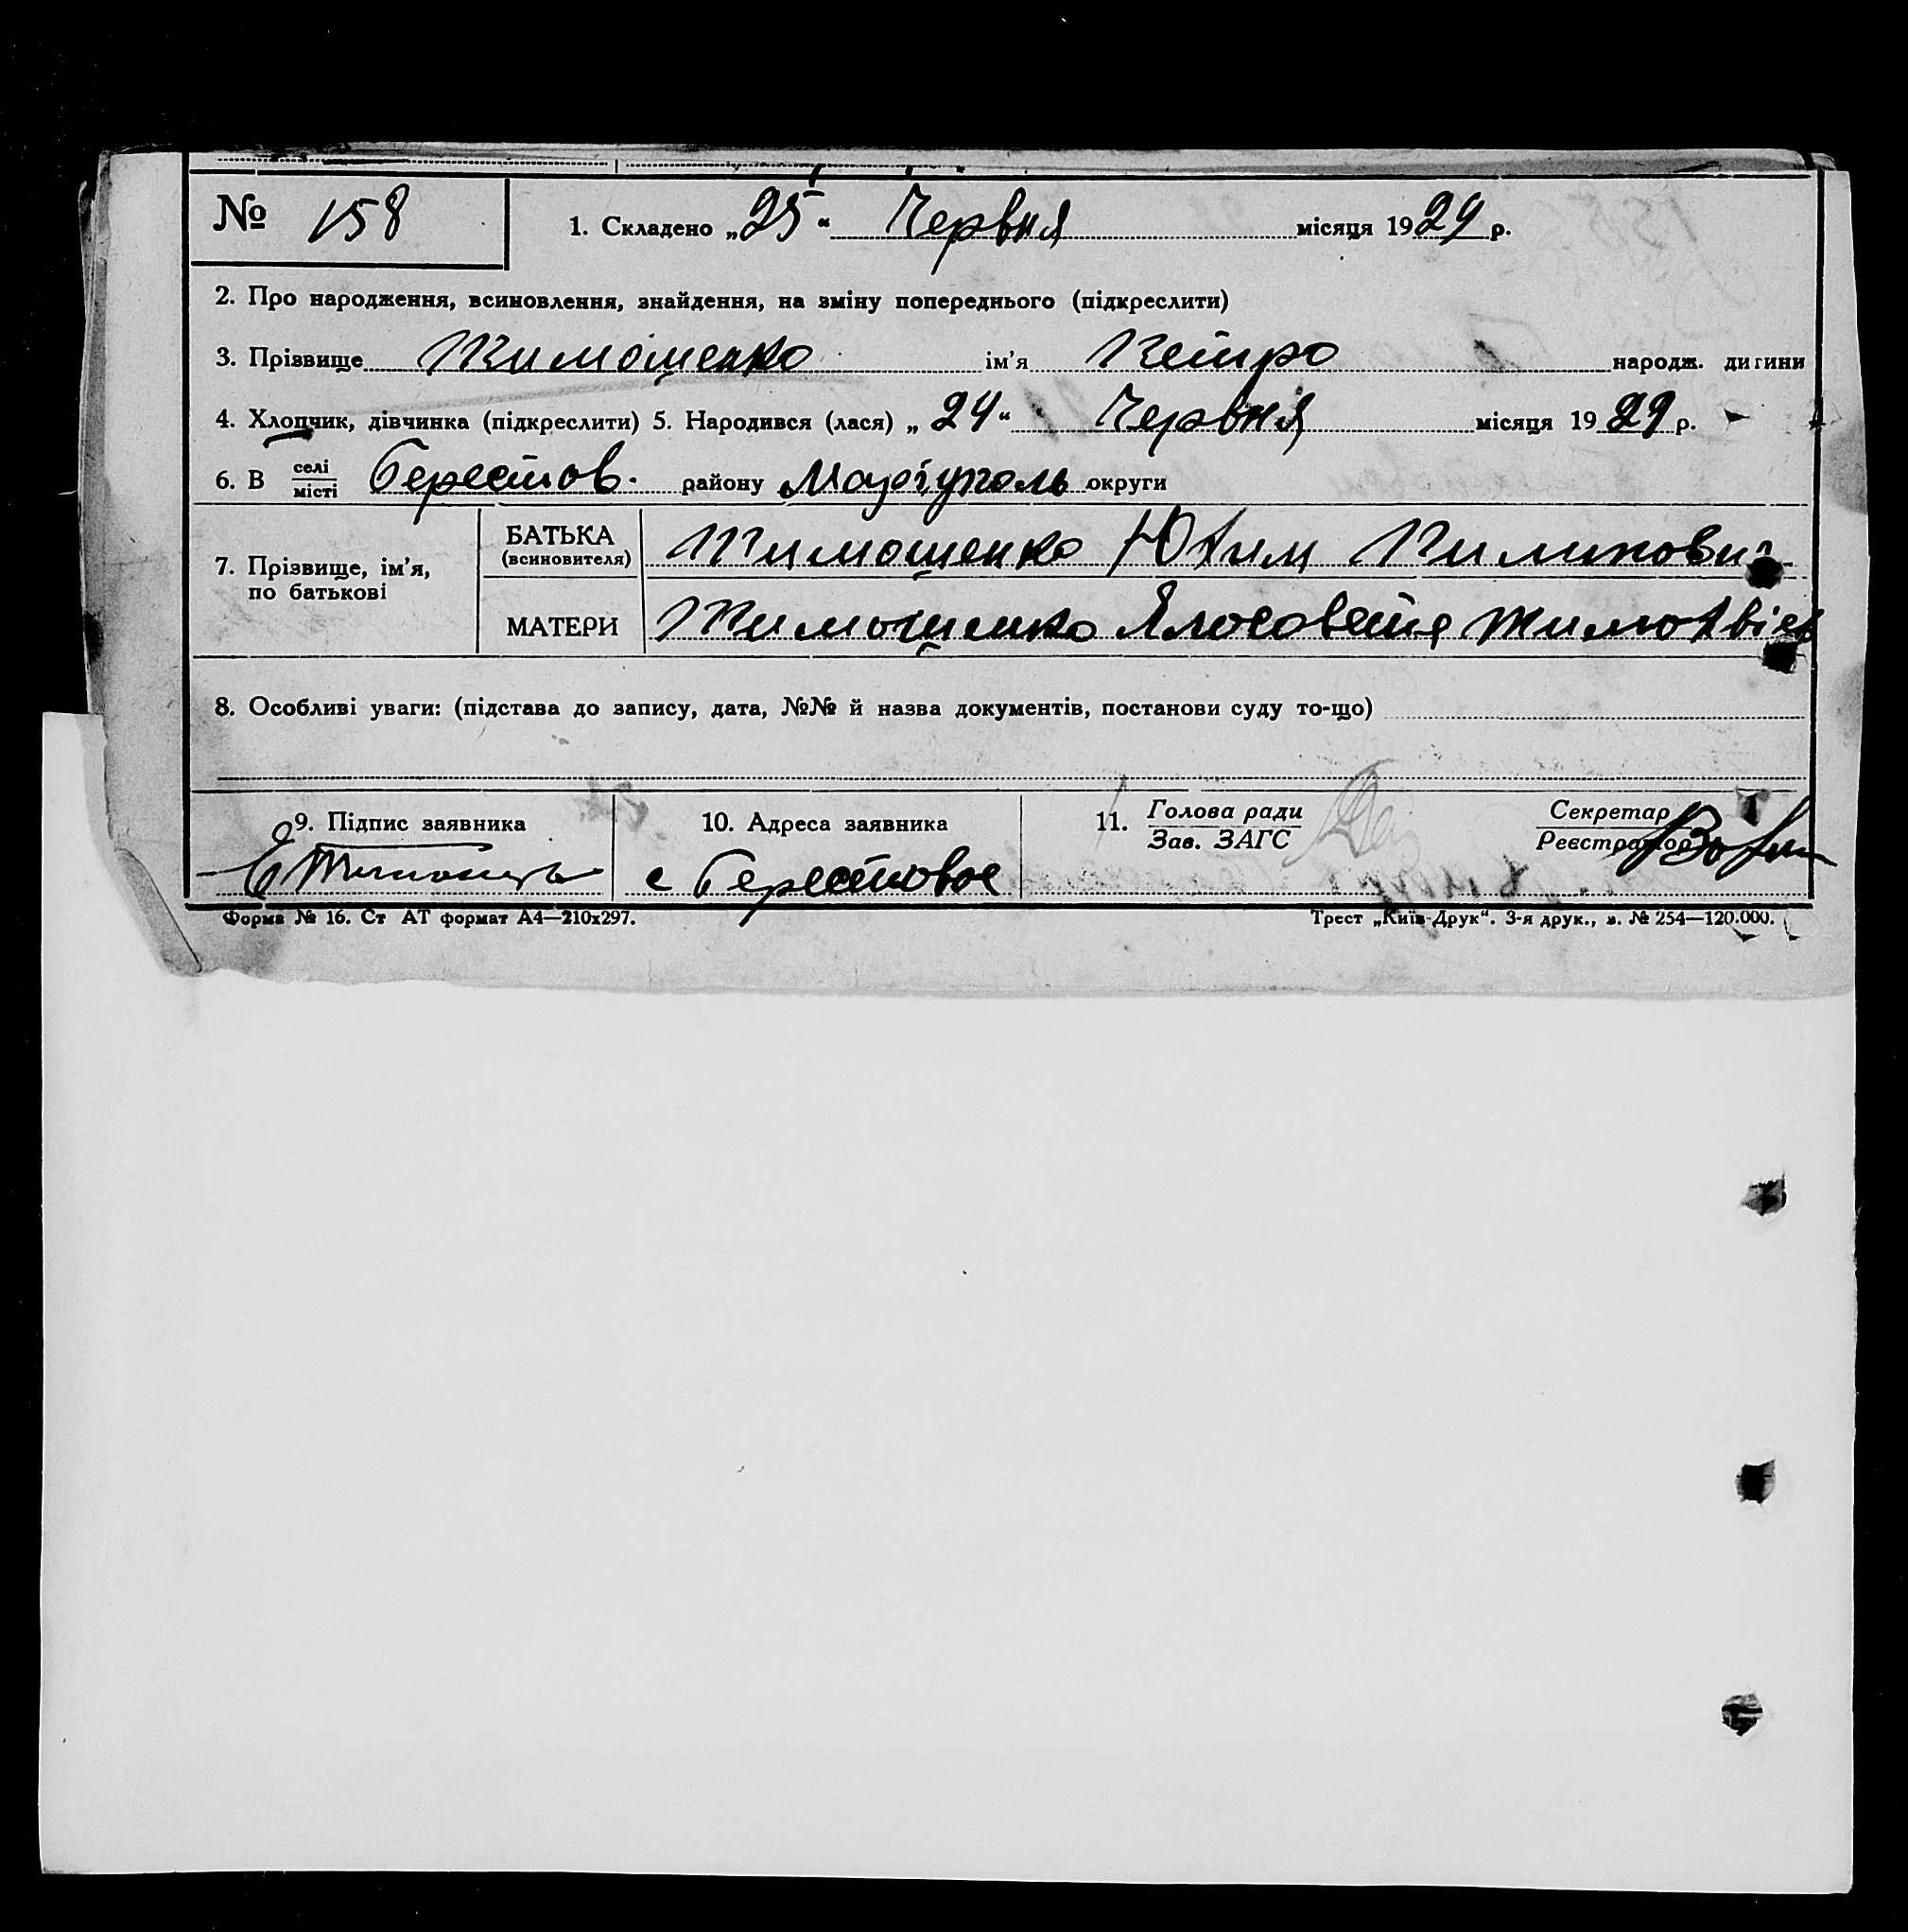 № 158
1. Складено „25“ Червня місяця 1929 р.
2. Про народження, всиновлення, знайдення, на зміну попереднього (підкреслити)
3. Прізвище Тимошенко ім’я Петро народж. дитини
4. Хлопчик, дівчинка (підкреслити) 5. Народився (лася) „24“ Червня місяця 1929 р.
6. В селі місті Берестов. району Маріуполь округи
7. Прізвище, ім’я, по батькові
БАТЬКА (всиновителя) Тимошенко Юхим Пилипович
МАТЕРИ Тимошенко
8. Особливі уваги: (підстава до запису, дата, №№ й назва документів, постанови суду то-що)
9. Підпис заявника 10. Адреса заявника 11. Голова ради Зав. ЗАГС Секретар Реєстратор
с Берестовое
Форма № 16. Ст АТ формат А4—210х297. Трест „Київ-Друк“. 3-я друк., з. № 254—120.000.